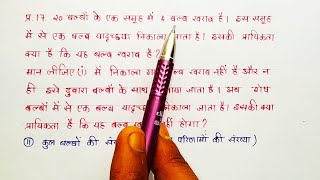 प्र.17. 20 बल्बों के एक समूह में 4 बल्ब खराब हैं। इस समूह
में से एक बल्ब यादृच्छया निकाला जाता है। इसकी प्रायिकता
क्या है कि यह बल्ब खराब है?
मान लीजिए (i) में निकाला गया बल्ब खराब नहीं है और न
ही इसे दुबारा बल्बों के साथ मिलाया जाता है। अब शेष
बल्बों में से एक बल्ब यादृच्छया निकाला जाता है। इसकी क्या
प्रायिकता है कि यह बल्ब नहीं होगा?
(ii) कुल बल्बों की परिणामों की संख्या)